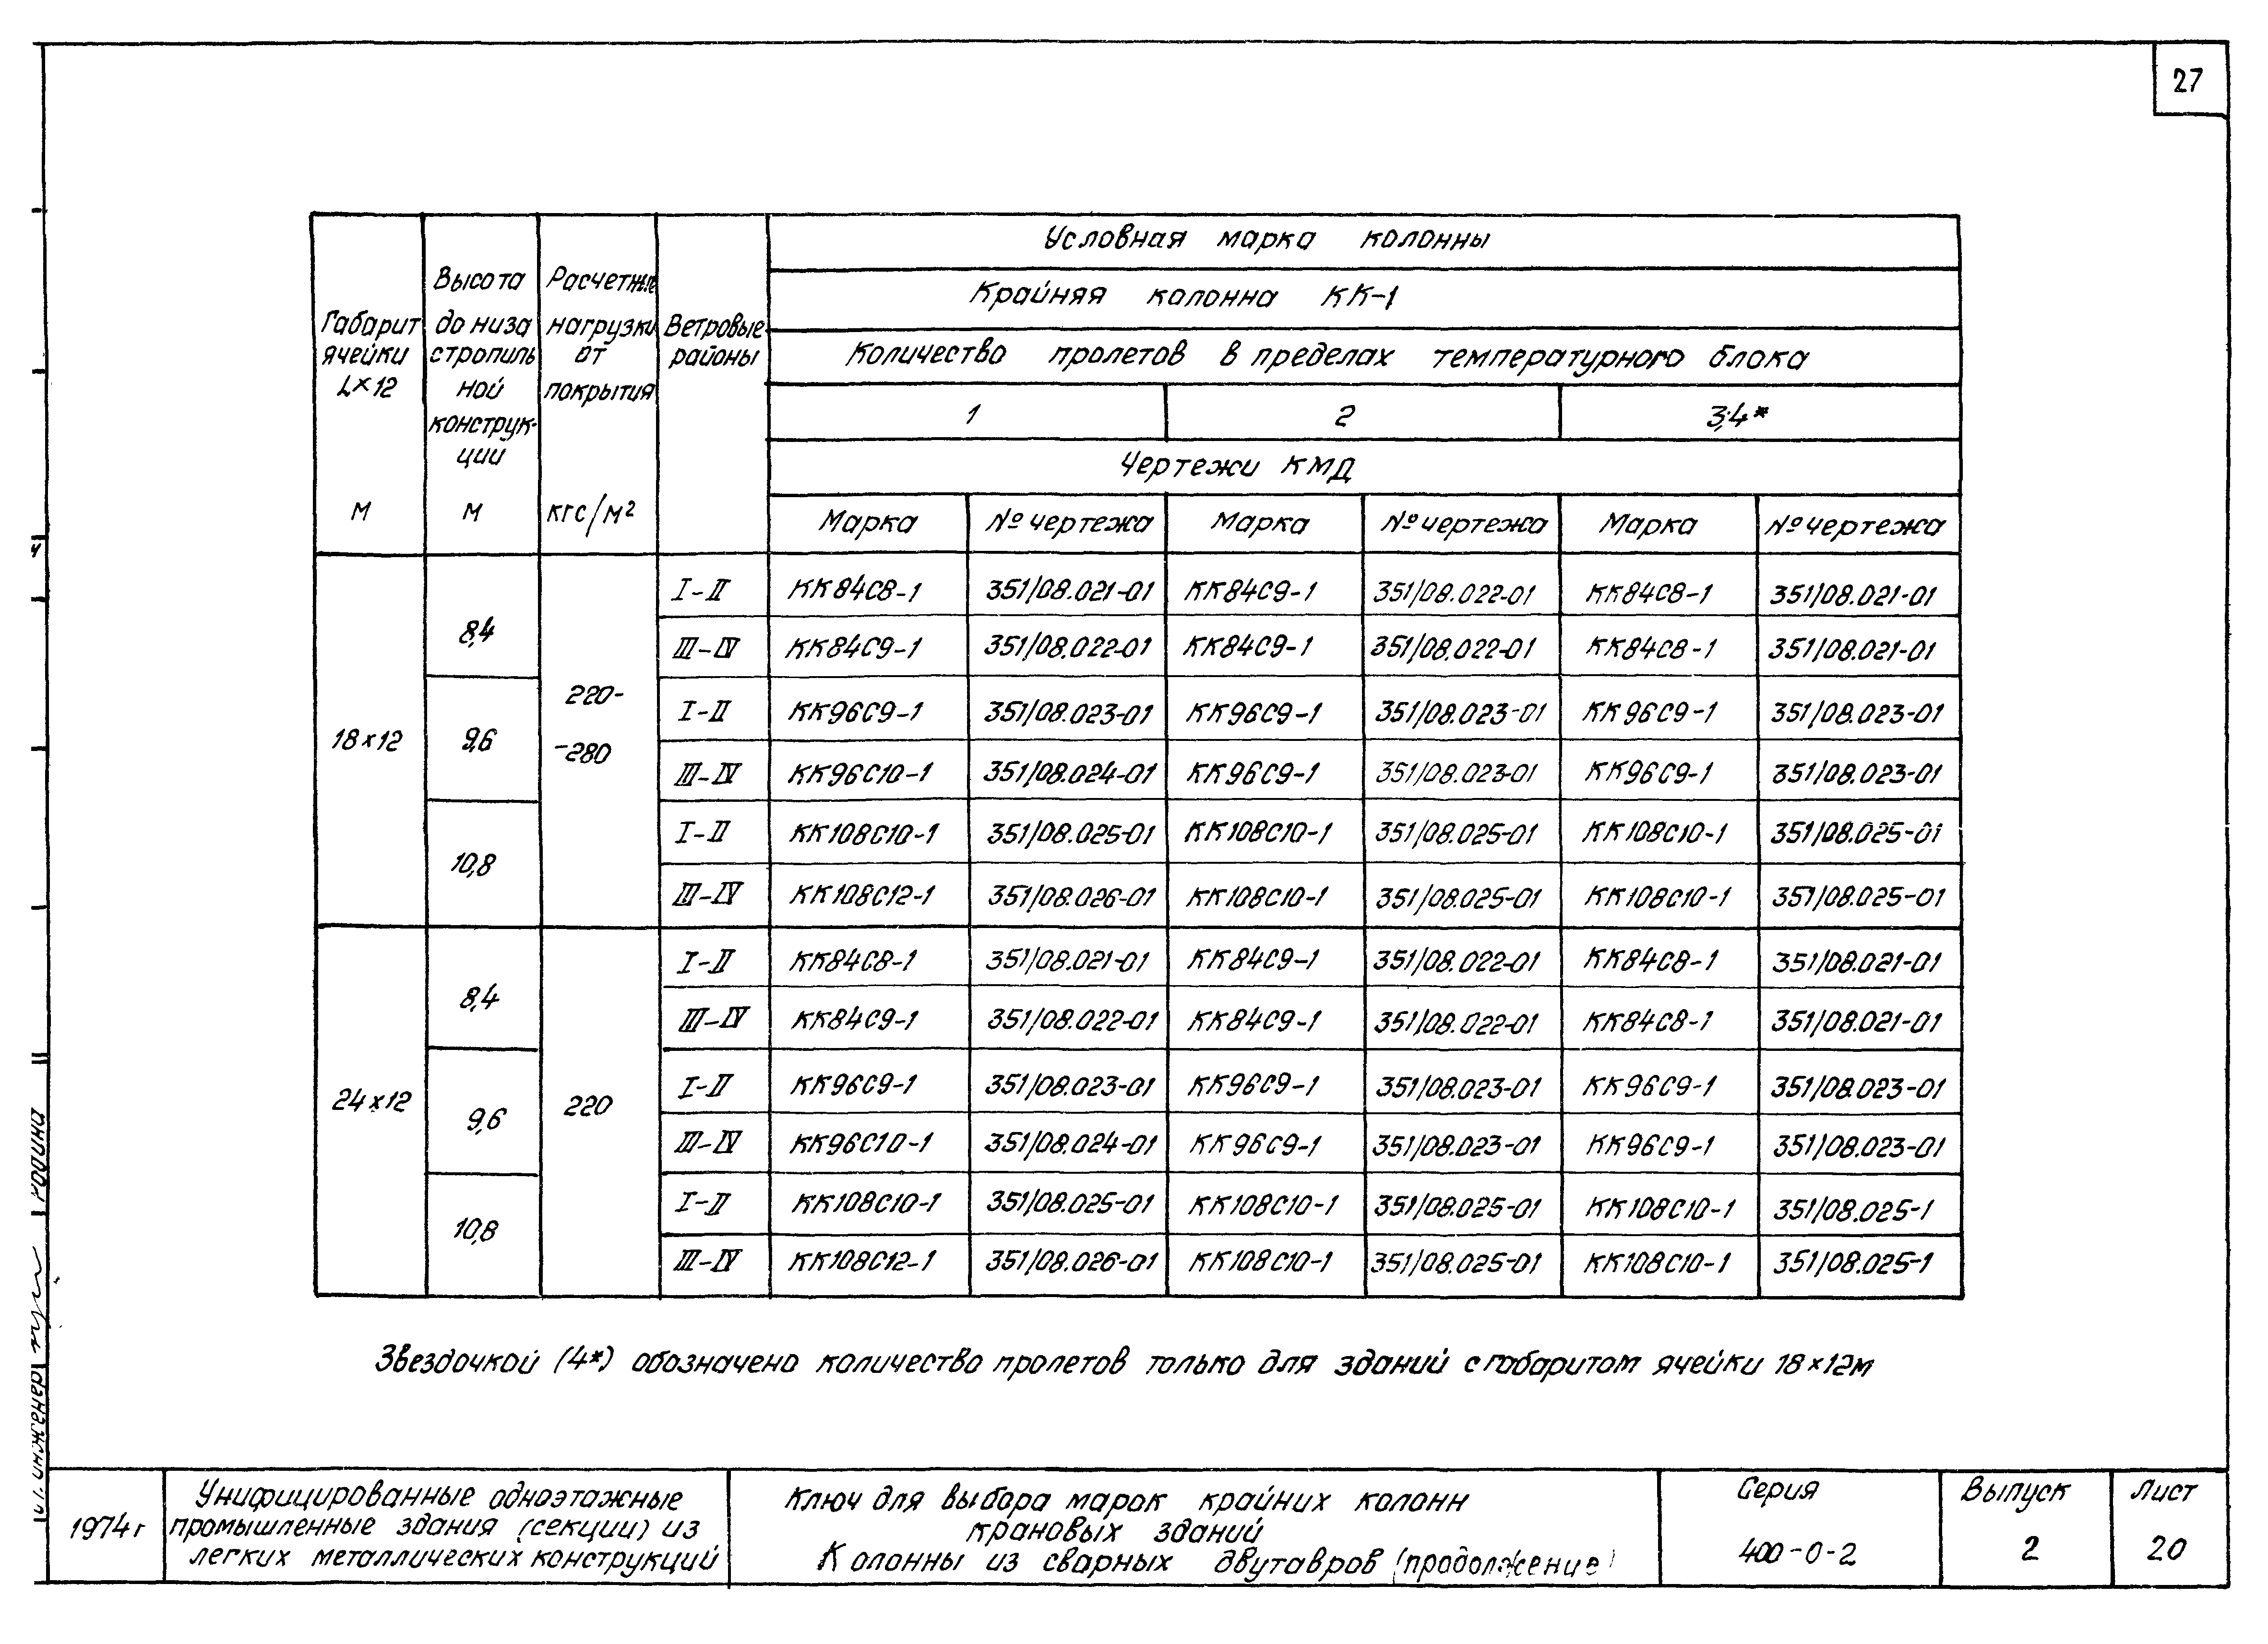 27
Условная марка колонны
Крайняя колонна КК-1
Количество пролетов в пределах температурного блока
1 2 3,4*
Чертежи КМД
Габарит
ячейки
L×12
м
Высота
до низа
стропиль
ной
конструк-
ции
м
Расчетные
нагрузки
от
покрытия
кгс/м²
Ветровые
районы
Марка № чертежа Марка № чертежа Марка № чертежа
18×12
8,4
220-
-280
I-II КК84С8-1 351/08.021-01 КК84С9-1 351/08.022-01 КК84С8-1 351/08.021-01
III-IV КК84С9-1 351/08.022-01 КК84С9-1 351/08.022-01 КК84С8-1 351/08.021-01
9,6
I-II КК96С9-1 351/08.023-01 КК96С9-1 351/08.023-01 КК96С9-1 351/08.023-01
III-IV КК96С10-1 351/08.024-01 КК96С9-1 351/08.023-01 КК96С9-1 351/08.023-01
10,8
I-II КК108С10-1 351/08.025-01 КК108С10-1 351/08.025-01 КК108С10-1 351/08.025-01
III-IV КК108С12-1 351/08.026-01 КК108С10-1 351/08.025-01 КК108С10-1 351/08.025-01
24×12
8,4
220
I-II КК84С8-1 351/08.021-01 КК84С9-1 351/08.022-01 КК84С8-1 351/08.021-01
III-IV КК84С9-1 351/08.022-01 КК84С9-1 351/08.022-01 КК84С8-1 351/08.021-01
9,6
I-II КК96С9-1 351/08.023-01 КК96С9-1 351/08.023-01 КК96С9-1 351/08.023-01
III-IV КК96С10-1 351/08.024-01 КК96С9-1 351/08.023-01 КК96С9-1 351/08.023-01
10,8
I-II КК108С10-1 351/08.025-01 КК108С10-1 351/08.025-01 КК108С10-1 351/08.025-1
III-IV КК108С12-1 351/08.026-01 КК108С10-1 351/08.025-01 КК108С10-1 351/08.025-1
Звездочкой (4*) обозначено количество пролетов только для зданий с габаритом ячейки 18×12м
1974г
Унифицированные одноэтажные
промышленные здания (секции) из
легких металлических конструкций
Ключ для выбора марок крайних колонн
крановых зданий
Колонны из сварных двутавров (продолжение)
Серия
400-0-2
Выпуск
2
Лист
20
инженер
Кодина